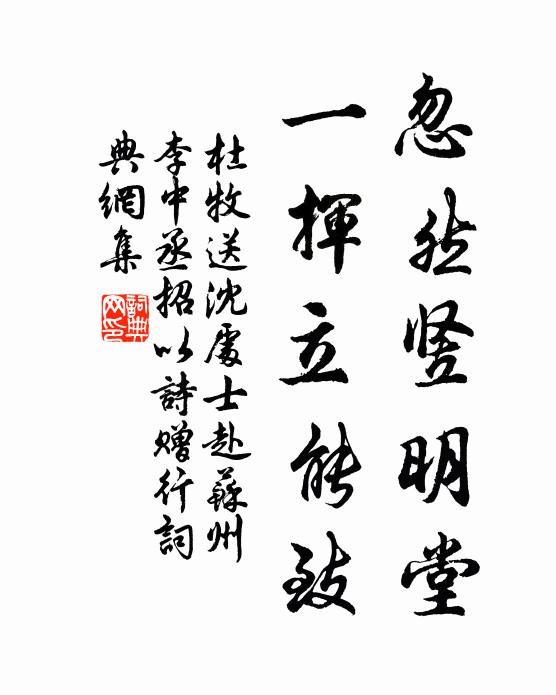 忽然竖明堂
一揮立能致
杜牧送沈處士赴蘇州
李中丞招以詩贈行詞
典網集
詞典网印